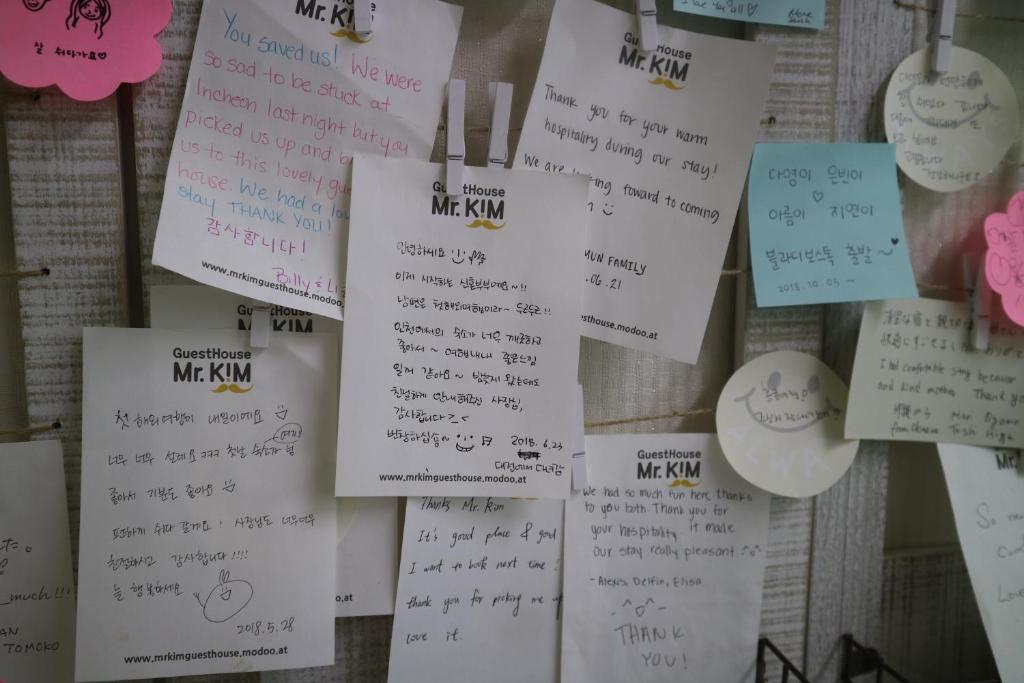 잘 쉬다가요♡
GuestHouse
Mr. KIM
You saved us! We were
so sad to be stuck at
Incheon last night but you
picked us up and
us to this lovely
house. We had a
stay THANK YOU!
감사합니다!
Billy &
www.mrkimguesthouse.modoo.
GuestHouse
Mr. K!M
Thank you for your warm
hospitality during our stay!
We are forward to coming
FAMILY
.06.21
sthouse.modoo.at
다영이 은빈이
♡
아름이 지연이
블라디보스톡 출발~♥
2018.10.05~
GuestHouse
Mr. K!M
안녕하세요
이제 시작하는 신혼부부예요~!!
남편은 첫해외여행이라~ 두근두근!!
인천에서의 숙소가 너무 깨끗하고
좋아서~ 여행내내 좋은느낌
일거 같아요~ 밤늦게 왔는데도
친절하게 안내해주신 사장님,
감사합니다
번창하십숑~
2018.6.23
대전에서
www.mrkimguesthouse.modoo.at
GuestHouse
Mr. K!M
첫 해외여행이 내일이에요
너무 너무 설레요 ㅋㅋㅋ 첫날 숙소가 넘
(여기)
좋아서 기분도 좋아요
편하게 쉬다 갈게요! 사장님도 너무너무
친절하시고 감사합니다!!!!
늘 행복하세요
2018.5.28
www.mrkimguesthouse.modoo.at
Thanks Mr. Kim
It's good place & good
I want to book next time!
thank you for picking me up
love it.
GuestHouse
Mr. K!M
We had so much fun here, thanks
to you both. Thank you for
your hospitality it made
our stay really pleasant. ^o^
-Alexis, Delfin, Elisa
THANK
YOU!
I had comfortable stay because
and kind mother. Thank you
Mari
from Okinawa
much!!!
TOMOKO
So
Com
Love